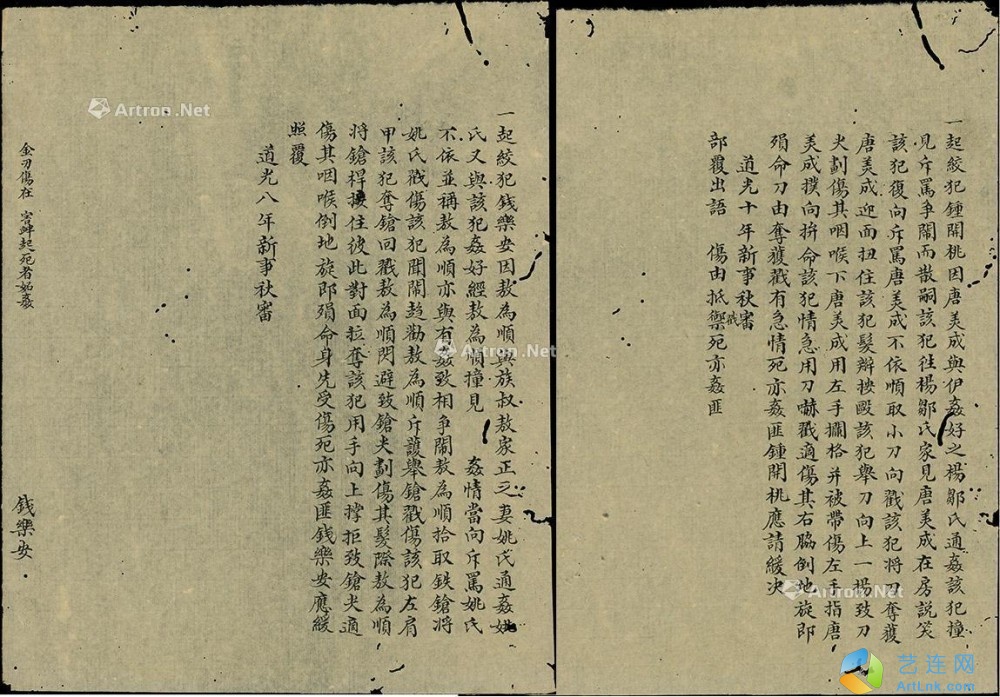 一起絞犯鍾開桃因唐美成與伊姦好之楊鄒氏通姦該犯撞
見斥罵爭鬧而散嗣該犯往楊鄒氏家見唐美成在房說笑
該犯復向斥罵唐美成不依順取小刀向戳該犯將刀奪獲
唐美成迎面扭住該犯髮辮按毆該犯舉刀向上一揚致刀
尖劃傷其咽喉下唐美成用左手攔格并被帶傷左手指唐
美成撲向拚命該犯情急用刀嚇戳適傷其右脇倒地旋即
殞命刀由奪獲戳有急情死亦姦匪鍾開桃應請緩決
道光十年新事秋審
部覆出語 傷由抵禦死亦姦匪
一起絞犯錢樂安因敖為順與族叔敖家正之妻姚氏通姦姚
氏又與該犯姦好經敖為順撞見 姦情當向斥罵姚氏
不依並稱敖為順亦與有姦致相爭鬧敖為順拾取鉄鎗將
姚氏戳傷該犯聞鬧趕勸敖為順斥護舉鎗戳傷該犯左肩
甲該犯奪鎗回戳敖為順閃避致鎗尖劃傷其髮際敖為順
將鎗桿揪住彼此對面拉奪該犯用手向上撑拒致鎗尖適
傷其咽喉倒地旋即殞命身先受傷死亦姦匪錢樂安應緩
照覆
道光八年新事秋審
金刃傷在 害衅起死者始姦
錢樂安
Artron.Net
Artron.Net
Artron.Net
Artron.Net
艺连网
ArtLnk.com